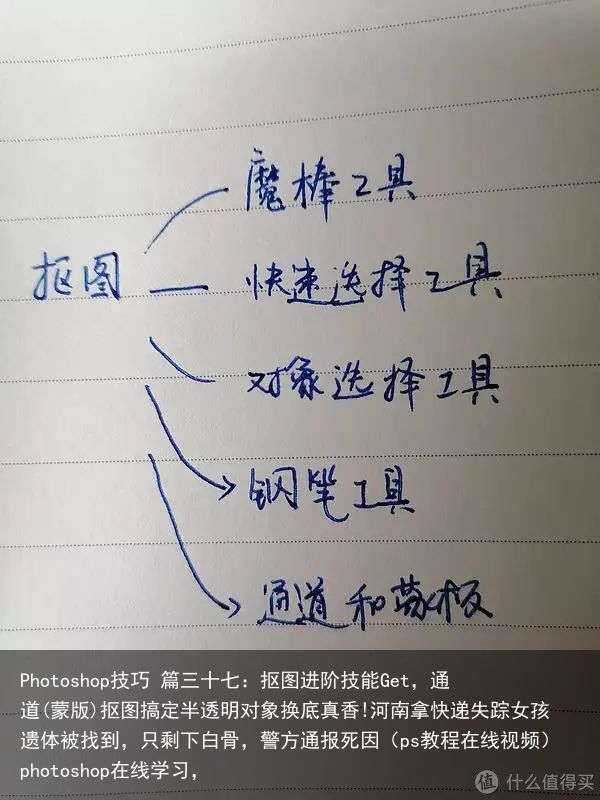 魔棒工具
抠图
快速选择工具
对象选择工具
钢笔工具
通道和蒙板
Photoshop技巧 篇三十七：抠图进阶技能Get，通
道(蒙版)抠图搞定半透明对象换底真香!河南拿快递失踪女孩
遗体被找到，只剩下白骨，警方通报死因（ps教程在线视频）
photoshop在线学习，
值 什么值得买